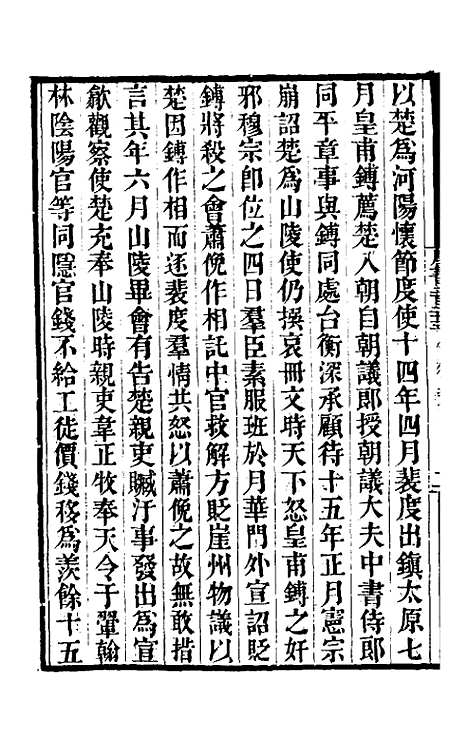 以楚爲河陽懷節度使十四年四月裴度出鎮太原七
月皇甫鎛薦楚入朝自朝議郎授朝議大夫中書侍郎
同平章事與鎛同處台衡深承顧待十五年正月憲宗
崩詔楚爲山陵使仍撰哀冊文時天下怒皇甫鎛之奸
邪穆宗卽位之四日羣臣素服班於月華門外宣詔貶
鎛將殺之會蕭俛作相託中官救解方貶崖州物議以
楚因鎛作相而逐裴度羣情共怒以蕭俛之故無敢措
言其年六月山陵畢會有告楚親吏贓汙事發出爲宣
歙觀察使楚充奉山陵時親吏韋正牧奉天令于翬翰
林陰陽官等同隱官錢不給工徒價錢移爲羨餘十五